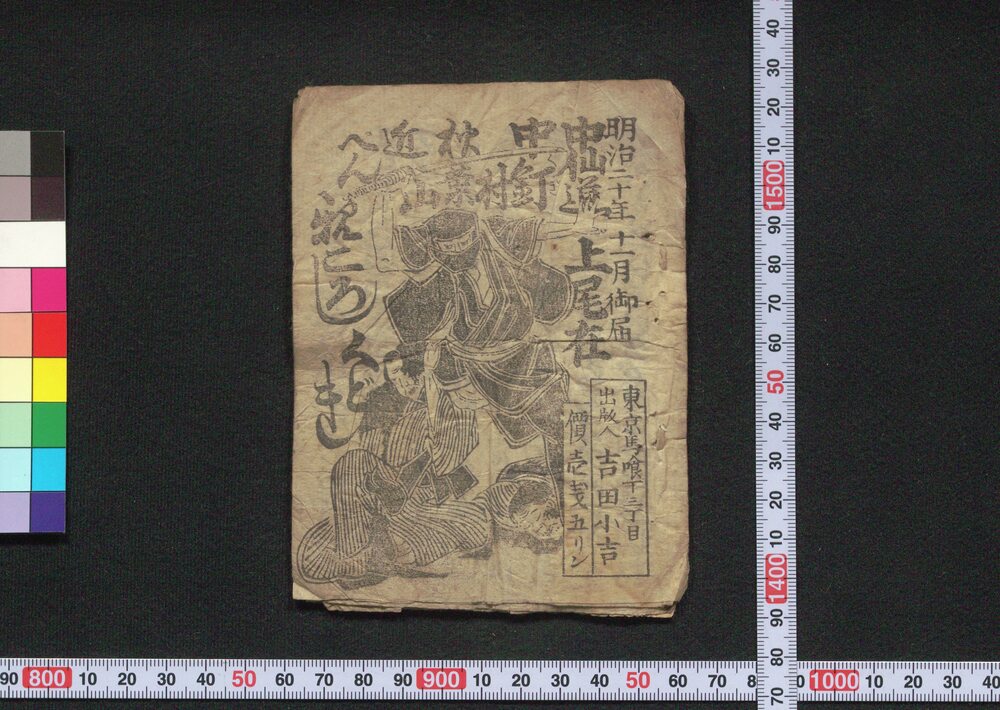 明治二十年十一月御届
中仙道上尾在
中釘村
秋葉山
近
べん
ころし
東京馬喰丁三丁目
出版人吉田小吉
價壱戔五リン
90 800 10 20 30 40 50 60 70 80 90 900 10 20 30 40 50 60 70 8 0 1000 10 20 30 40
40 30 20 10 1500 90 80 70 60 50 40 30 20 10 1400 90 80 70